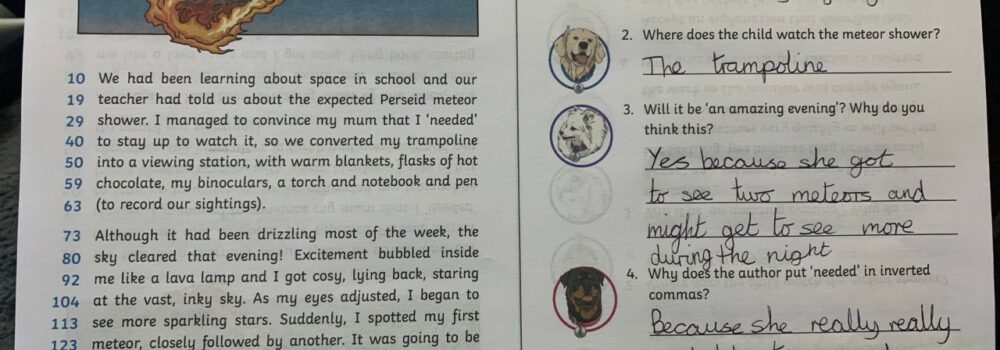 10 We had been learning about space in school and our
19 teacher had told us about the expected Perseid meteor
29 shower. I managed to convince my mum that I ‘needed’
40 to stay up to watch it, so we converted my trampoline
50 into a viewing station, with warm blankets, flasks of hot
59 chocolate, my binoculars, a torch and notebook and pen
63 (to record our sightings).
73 Although it had been drizzling most of the week, the
80 sky cleared that evening! Excitement bubbled inside
92 me like a lava lamp and I got cosy, lying back, staring
104 at the vast, inky sky. As my eyes adjusted, I began to
113 see more sparkling stars. Suddenly, I spotted my first
123 meteor, closely followed by another. It was going to be
2. Where does the child watch the meteor shower?
The trampoline
3. Will it be ‘an amazing evening’? Why do you
think this?
Yes because she got
to see two meteors and
might get to see more
during the night
4. Why does the author put ‘needed’ in inverted
commas?
Because she really really